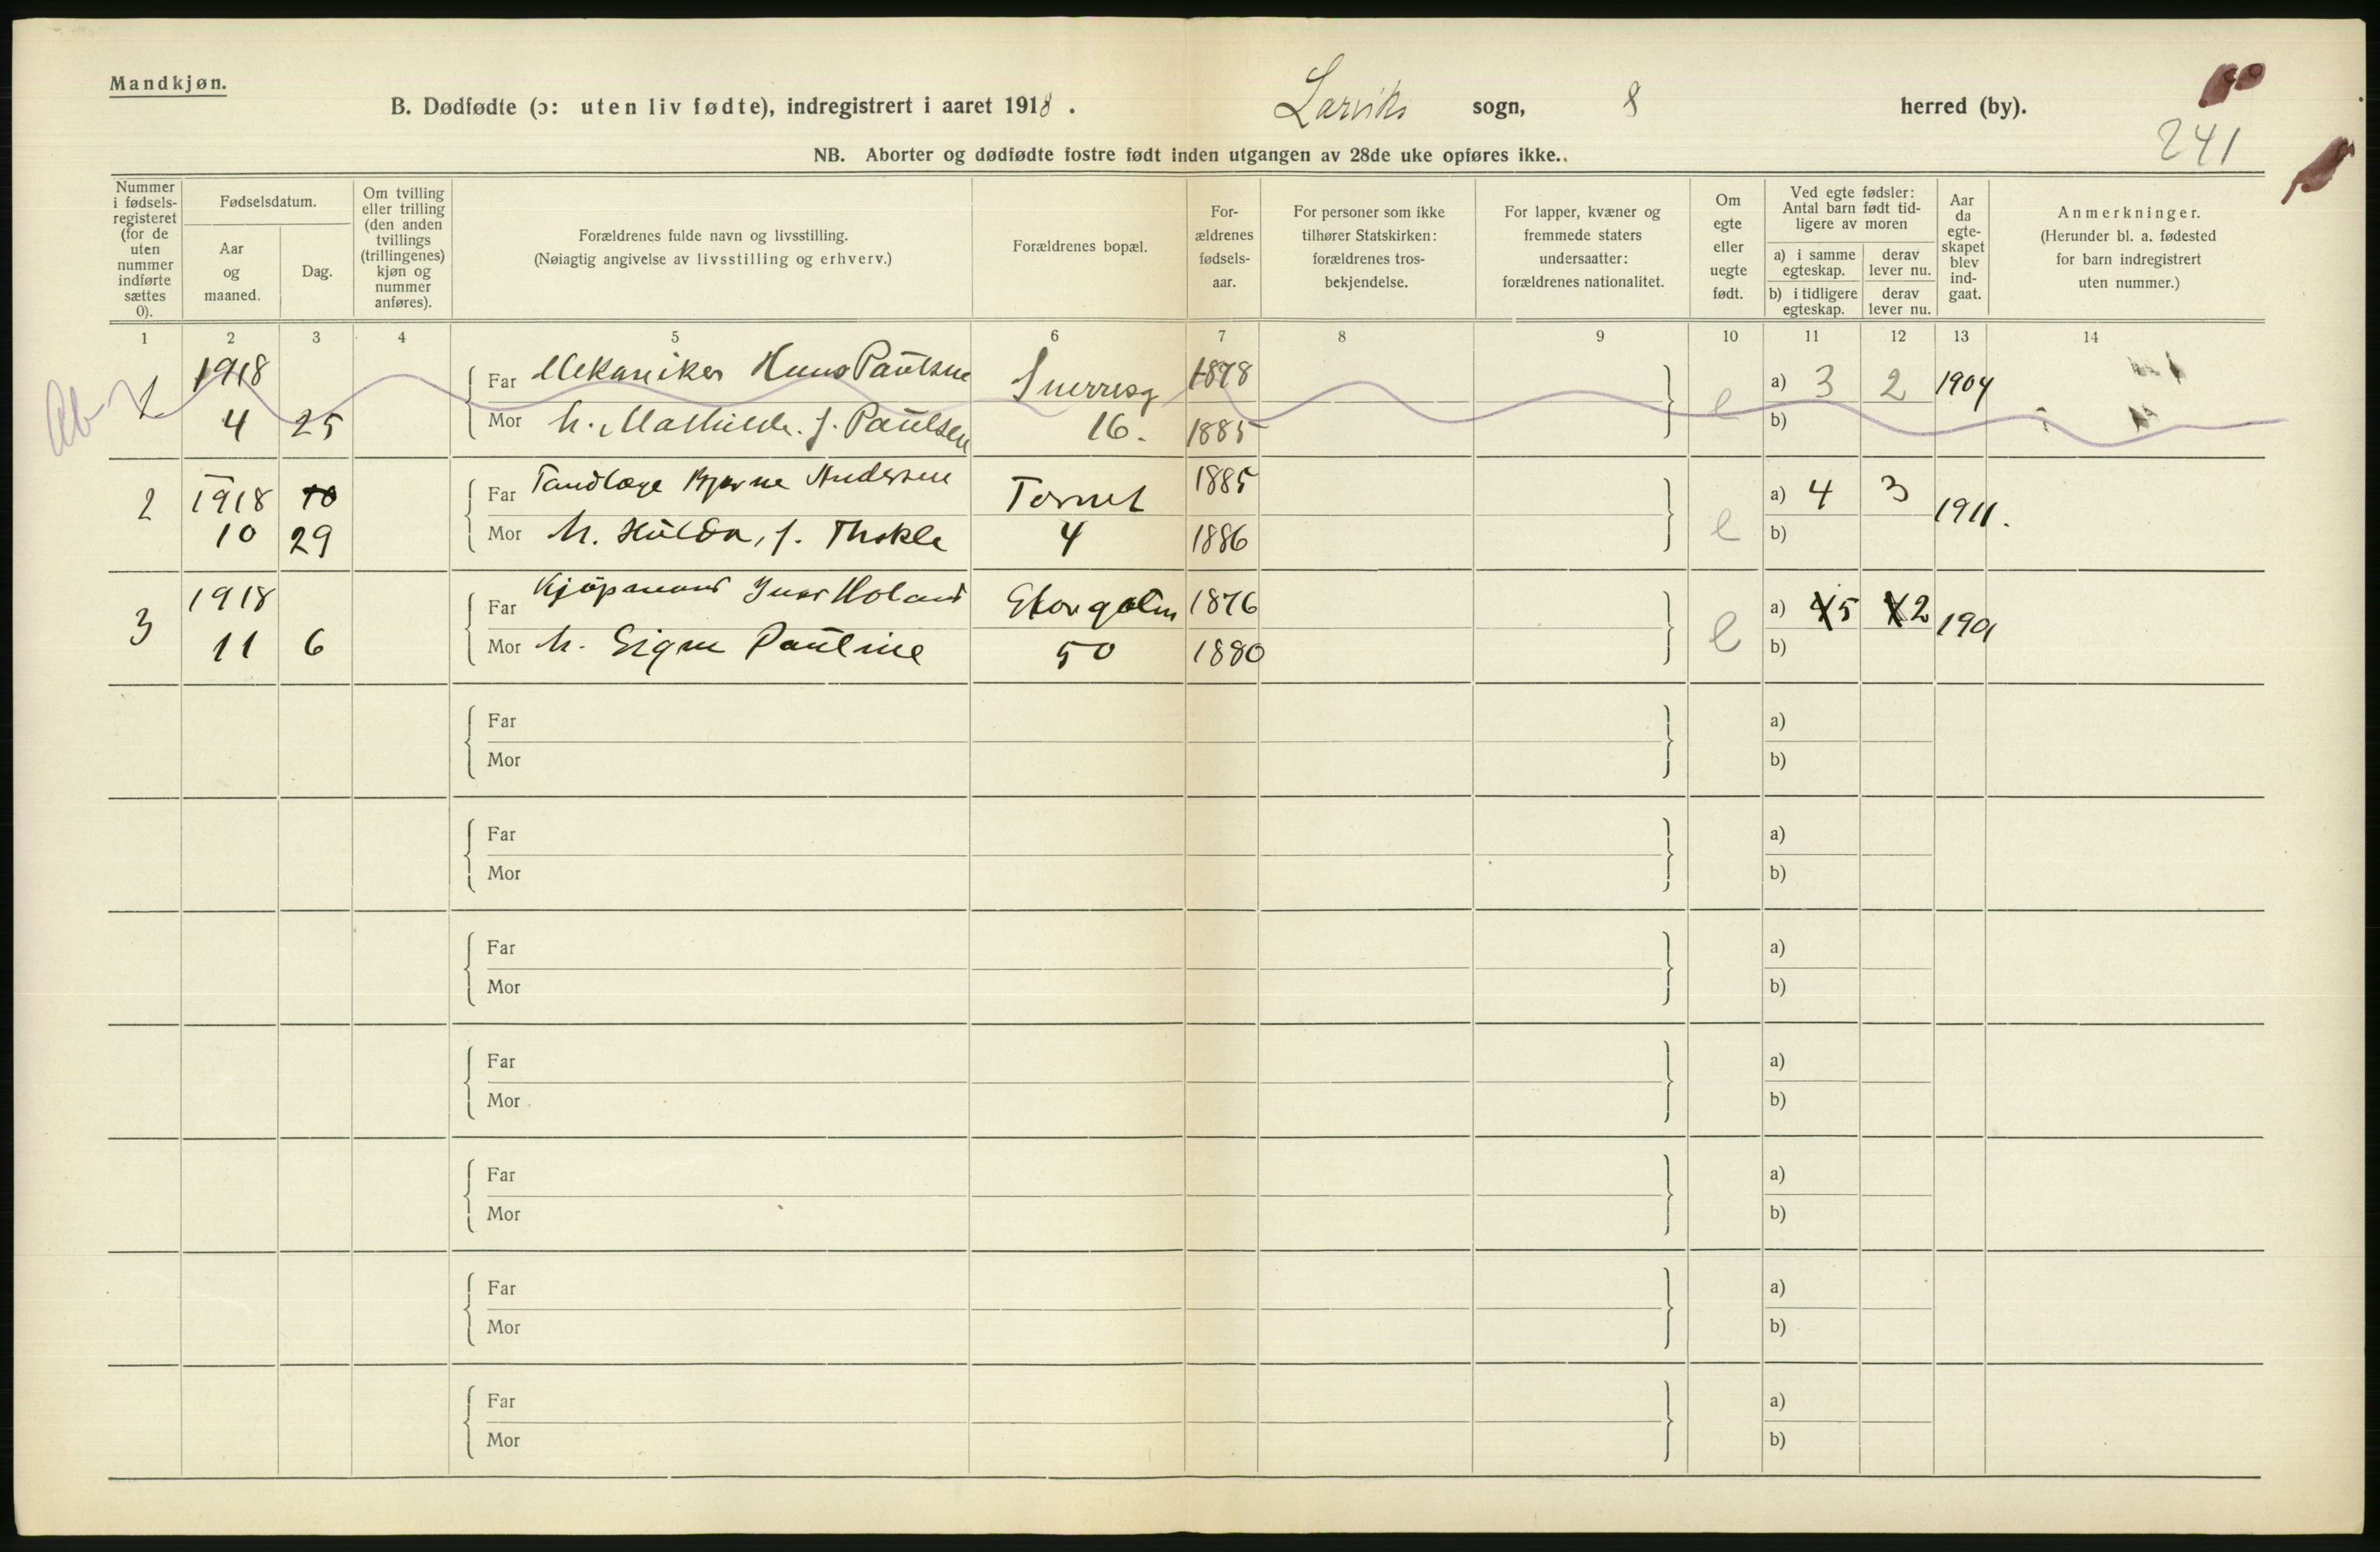 Mandkjøn.
B. Dødfødte (ɔ: uten liv fødte), indregistrert i aaret 1918. Larviks sogn, 8 herred (by).
241
NB. Aborter og dødfødte fostre født inden utgangen av 28de uke opføres ikke..
Nummer i fødsels-registeret (for de uten nummer indførte sættes 0).
Fødselsdatum.
Aar og maaned.
Dag.
Om tvilling eller trilling (den anden tvillings (trillingenes) kjøn og nummer anføres).
Forældrenes fulde navn og livsstilling.
(Nøiagtig angivelse av livsstilling og erhverv.)
Forældrenes bopæl.
For-ældrenes fødsels-aar.
For personer som ikke tilhører Statskirken: forældrenes tros-bekjendelse.
For lapper, kvæner og fremmede staters undersaatter: forældrenes nationalitet.
Om egte eller uegte født.
Ved egte fødsler: Antal barn født tid-ligere av moren
a) i samme egteskap.
derav lever nu.
b) i tidligere egteskap.
derav lever nu.
Aar da egte-skapet blev ind-gaat.
Anmerkninger.
(Herunder bl. a. fødested for barn indregistrert uten nummer.)
1 2 3 4 5 6 7 8 9 10 11 12 13 14
Ab
1 1918 Far Mekaniker Hans Paulsen 1878 e a) 3 2 1904
4 25 Mor h. Mathilde. f. Paulsen 16. 1885 b)
2 1918 10 Far Tandlæge Bjarne Andersen Tornet 1885 e a) 4 3 1911.
10 29 Mor h. Hulda, f. Thokle 4 1886 b)
3 1918 Far Kjøpmand Holand 1876 e a) 5 2 1901
11 6 Mor h. Signe Pauline 50 1880 b)
Far a)
Mor b)
Far a)
Mor b)
Far a)
Mor b)
Far a)
Mor b)
Far a)
Mor b)
Far a)
Mor b)
Far a)
Mor b)